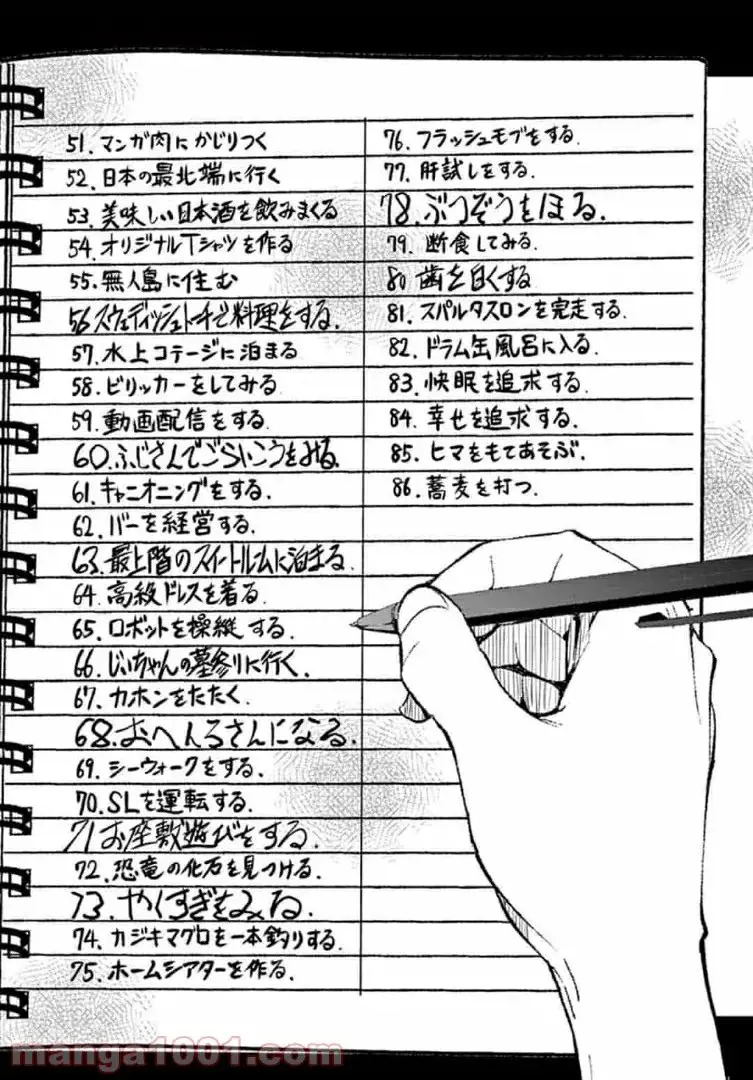 51. マンガ肉にかじりつく
52. 日本の最北端に行く
53. 美味しい日本酒を飲みまくる
54. オリジナルTシャツを作る
55. 無人島に住む
56 スウェディッシュトーチで料理をする.
57. 水上コテージに泊まる
58. ビリッカーをしてみる
59. 動画配信をする.
60. ふじさんでごらいこうをみる.
61. キャニオニングをする.
62. バーを経営する.
63. 最上階のスイートルムに泊まる
64. 高級ドレスを着る.
65. ロボットを操縦する.
66. じいちゃんの墓参りに行く.
67. カホンをたたく.
68. おへんろさんになる.
69. シーウォークをする.
70. SLを運転する.
71 お座敷遊びをする.
72. 恐竜の化石を見つける.
73. やくすぎをみる.
74. カジキマグロを一本釣りする.
75. ホームシアターを作る.
76. フラッシュモブをする.
77. 肝試しをする.
78. ぶつぞうをほる.
79. 断食してみる.
80 歯を白くする
81. スパルタスロンを完走する.
82. ドラム缶風呂に入る.
83. 快眠を追求する.
84. 幸せを追求する.
85. ヒマをもてあそぶ.
86. 蕎麦を打つ.
manga1001.com